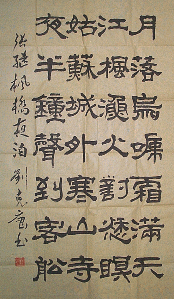 月落烏啼霜滿天
江楓漁火對愁眠
姑蘇城外寒山寺
夜半鐘聲到客船
張繼楓橋夜泊 劉克書